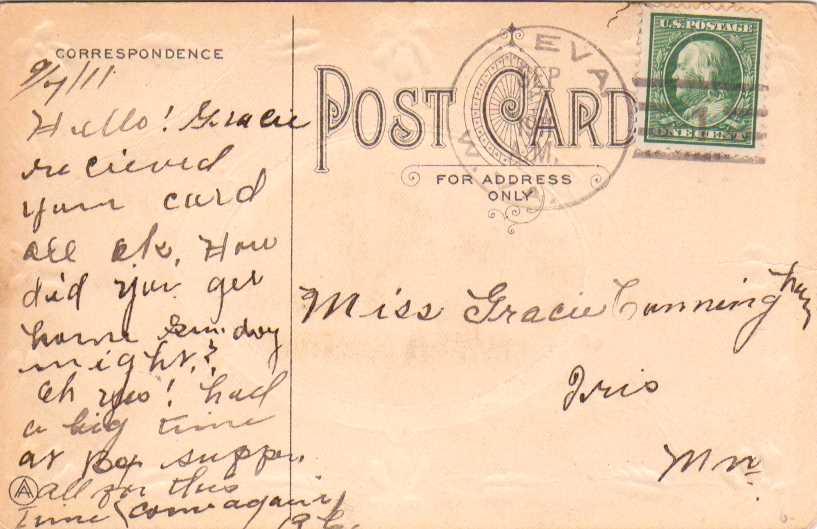 CORRESPONDENCE
9/7/11
Hello! Gracie
recieved
your card
all ok. How
did you get
home Sunday
night?
Oh yes! had
a big time
at Box supper.
all for this
time (come again)
POST CARD
FOR ADDRESS
ONLY
EVA
SEP
A.M.
W. VA.
U.S. POSTAGE
1
ONE CENT
Miss Gracie Cunningham
Iris
A